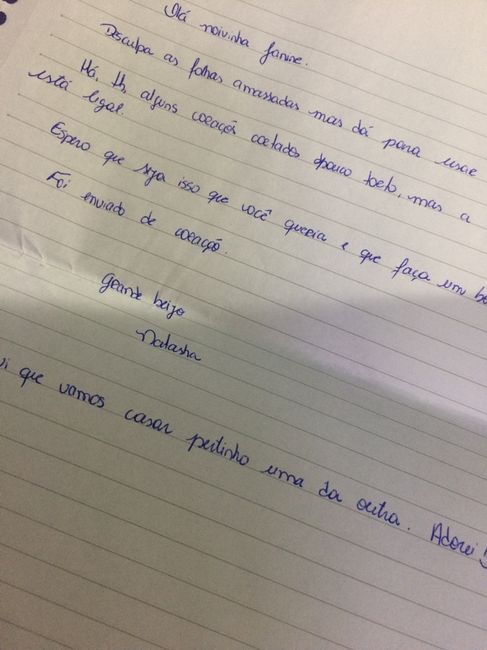 Olá noivinha Janine.
Desculpa as folhas amassadas mas dá para usar
Há, alguns corações cortados pouco torto, mas a
está legal.
Espero que seja isso que você queria e que faça um
Foi enviado de coração.
Grande beijo
Natasha
vi que vamos casar pertinho uma da outra. Adorei!